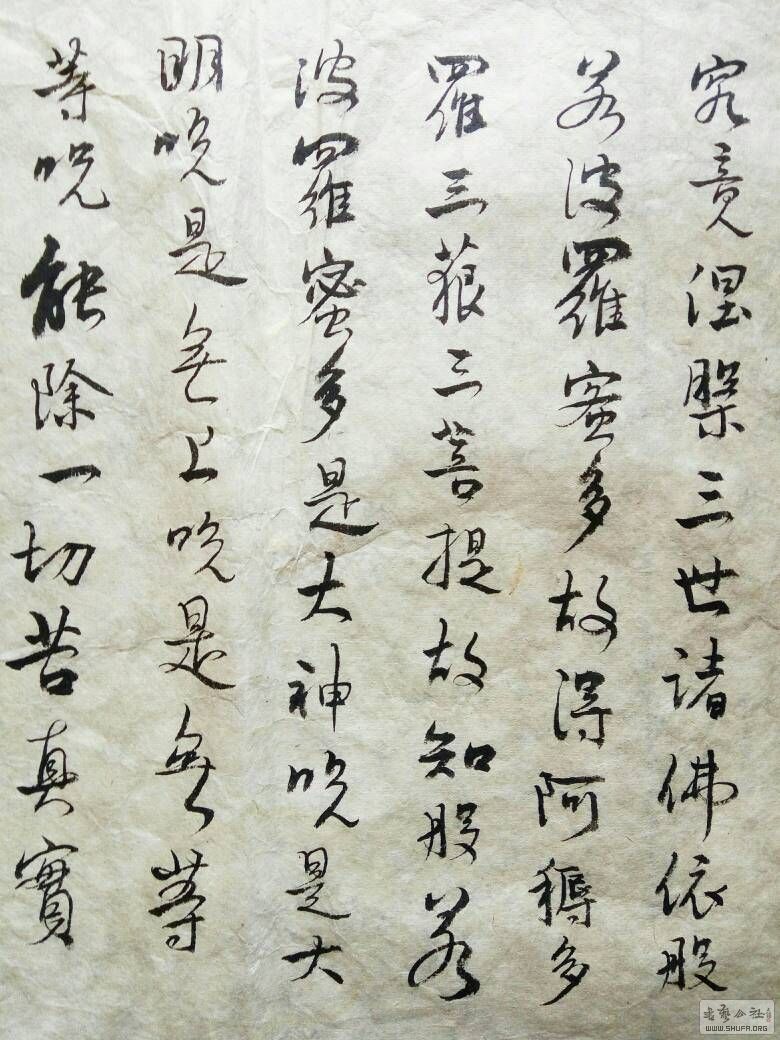 究竟涅槃三世諸佛依般
若波羅蜜多故得阿耨多
羅三藐三菩提故知般若
波羅蜜多是大神咒是大
明咒是無上咒是無等
等咒能除一切苦真實
书艺公社
WWW.SHUFA.ORG